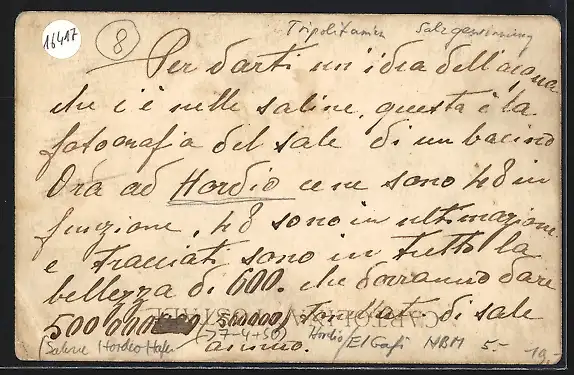 16417
8
Tripolitanien Salzgewinnung
Per darti un'idea dell'acqua
che c'è nelle saline, questa è la
fotografia del sale di un bacino
Ora ad Hordio ce ne sono 48 in
funzione, 48 sono in ultimazione
e tracciati sono in tutto la
bellezza di 600. che dovranno dare
500000 (500000) tonellate di sale
CARTOLINA POSTALE
annuo.
(27-4-30)
(Saline Hordio Hafun Hordio/El Gafi NBM 5.- 19.-